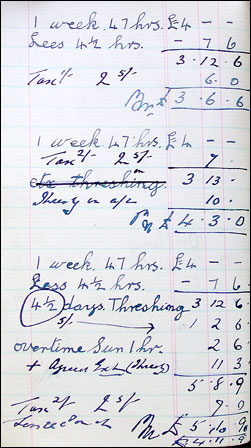 1 week. 47 hrs. £4 - -
Less 4½ hrs. - 7 6
3 . 12 . 6
Tax 1/- 2 5/- 6 . 0
£ 3 . 6 . 6
1 week. 47 hrs. £4 - -
Tax 2/- 2 5/- 7 .
threshing 3 13 .
in a/c 10 .
£ 4 . 3 . 0
1 week. 47 hrs. £4 - -
Less 4½ hrs. - 7 6
4½ days. Threshing 3 12 6
5/- 1 2 6
overtime Sun 1 hr. 2 6
+ 11 3
5 . 8 . 9
Tax 2/- 2 5/- 9 . 0